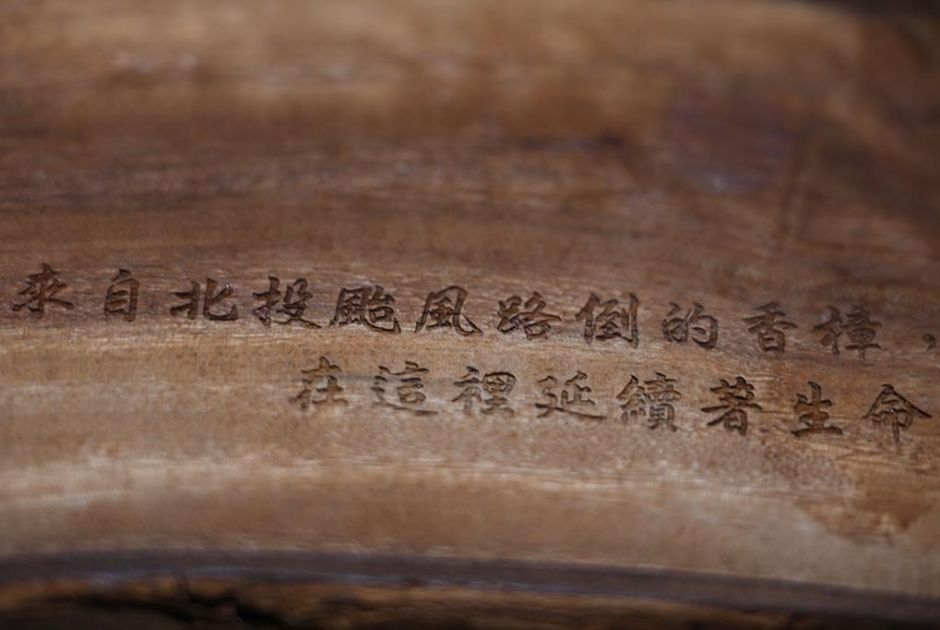 來自北投颱風路倒的香樟，
在這裡延續著生命